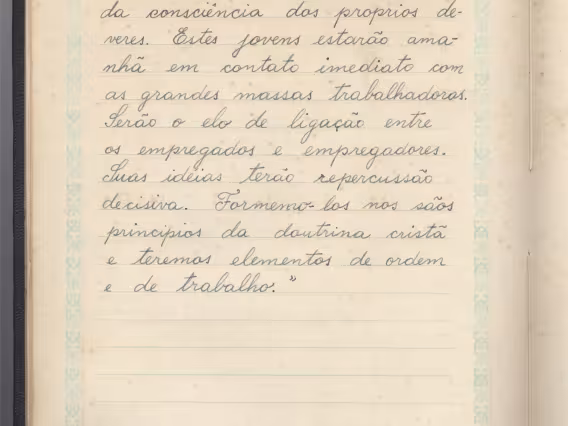 da consciência dos proprios de-
veres. Estes jovens estarão ama-
nhã em contato imediato com
as grandes massas trabalhadoras.
Serão o elo de ligação entre
os empregados e empregadores.
Suas idéias terão repercussão
decisiva. Formemo-los nos sãos
princípios da doutrina cristã
e teremos elementos de ordem
e de trabalho."